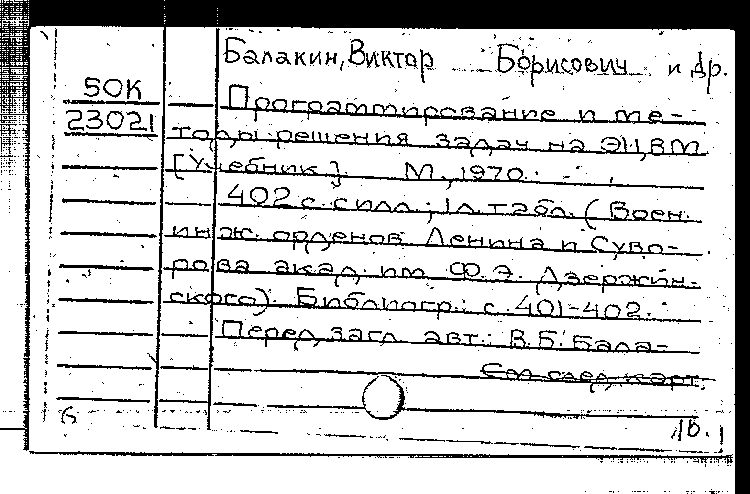 Балакин, Виктор Борисович и др.
50К
23021
Программирование и ме-
тоды решения задач на ЭЦВМ
[Учебник]. М., 1970.
402 с. с илл.; 1 л. табл. (Воен.
инж. орденов Ленина и Суво-
рова акад. им. Ф.Э. Дзержин-
ского). Библиогр.: с. 401-402.
Перед загл. авт.: В.Б. Бала-
См. след. карт.
б